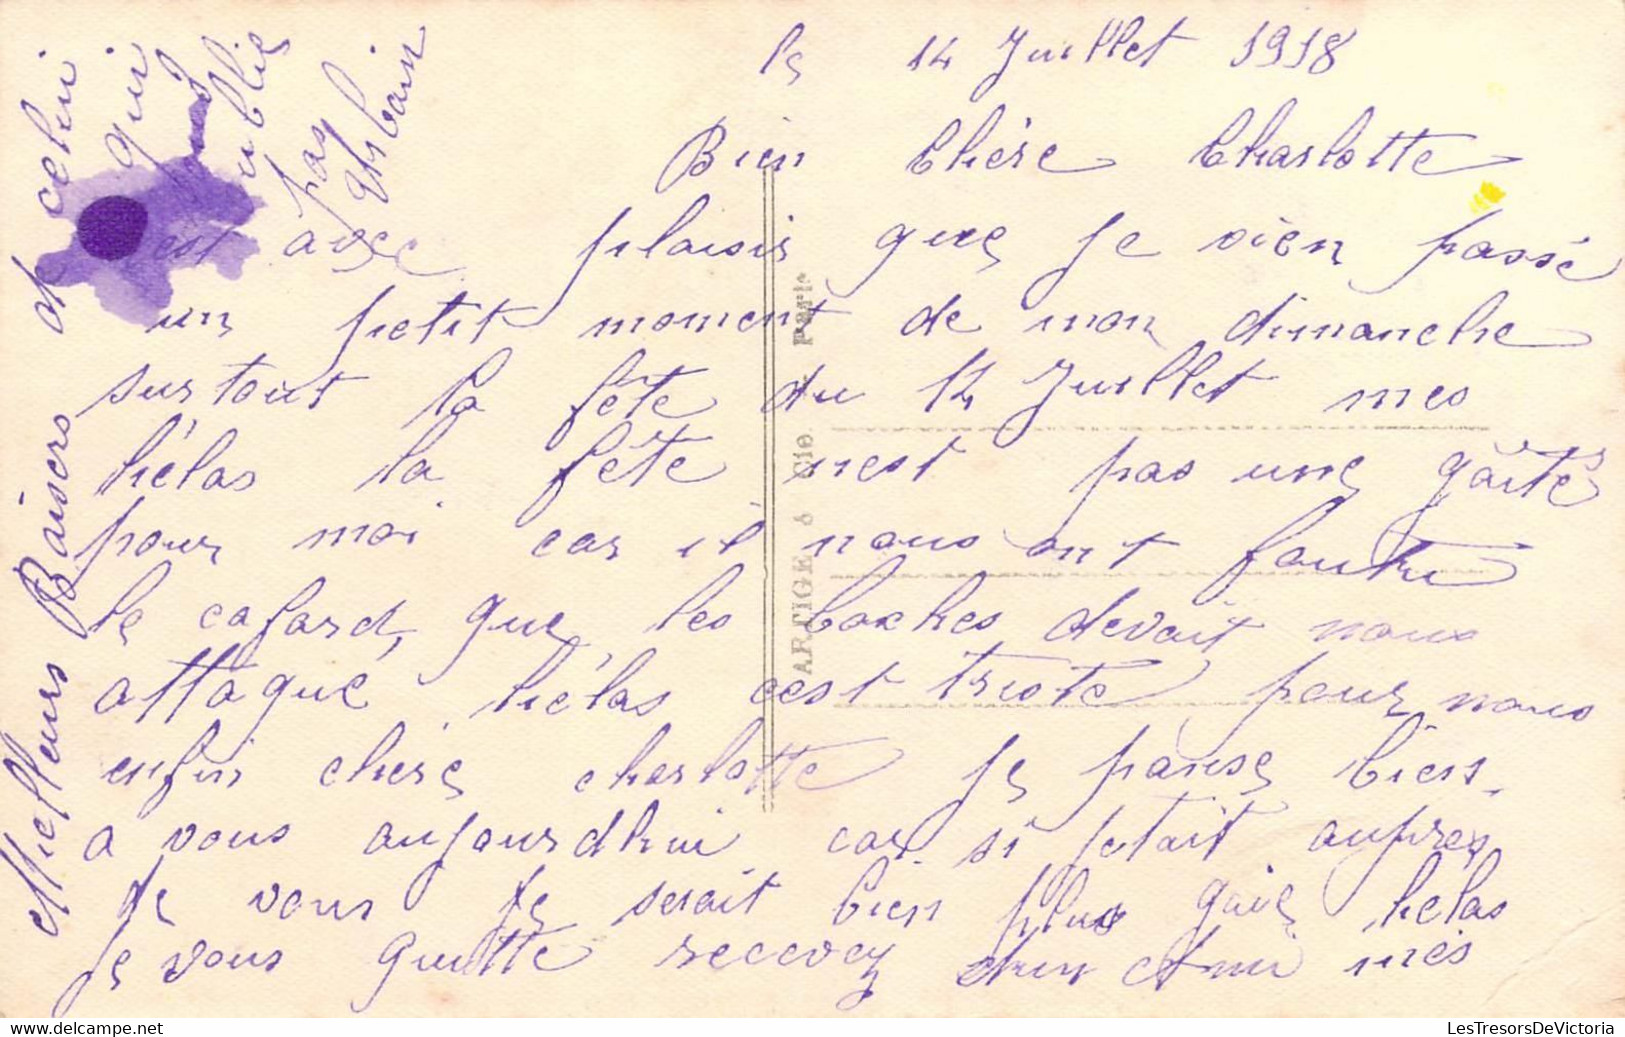 le 14 Juillet 1918
Bien Chère Charlotte
c'est avec plaisir que je vien passé
un petit moment de mon dimanche
surtout la fête du 14 Juillet mes
hélas la fête n'est pas une gaîtés
pour moi car il nous ont foutu
le cafard, que les boches devait nous
attaqué hélas c'est triste pour nous
enfin chère charlotte je panse bien
a vous aujourdhui car si jetait aupres
de vous je serait bien plus gaie, helas
je vous quitte recevez d'un Ami mes
Meilleurs Baisers de celui
qui
vous
oublie
pas
Ghibain
ARTIGE & Cie. Paris
LesTresorsDeVictoria sur www.delcampe.net
LesTresorsDeVictoria